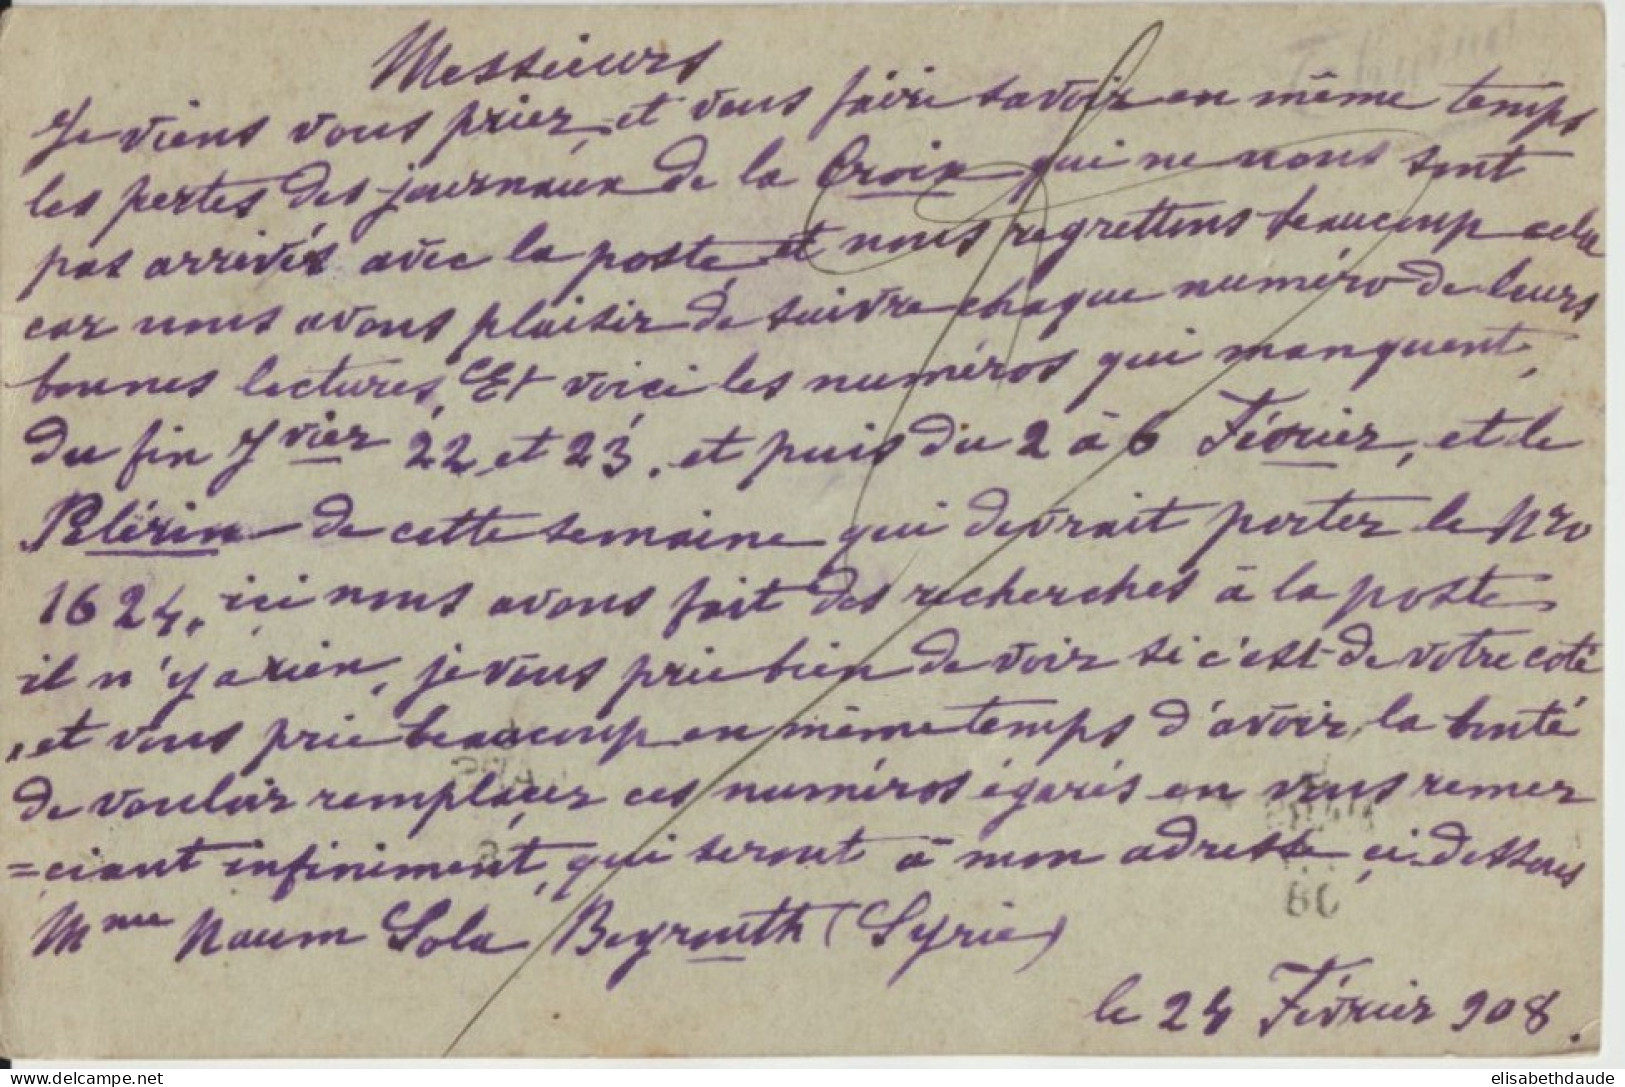 Messieurs
Je viens vous prier, et vous faire savoir en même temps
les pertes des journaux de la Croix qui ne nous sont
pas arrivés avec la poste, et nous regrettons beaucoup cela
car nous avons plaisir de suivre chaque numéro de leurs
bonnes lectures, Et voici les numéros qui manquent,
du fin Jvier 22 et 23. et puis du 2 à 6 Février, et le
Pélérin de cette semaine qui devrait porter le Nro
1624, ici nous avons fait des recherches à la poste
il n'y a rien, je vous prie bien de voir si c'est de votre coté
, et vous prie beaucoup en même temps d'avoir la bonté
de vouloir remplaçer ces numéros égarés en vous remer
=ciant infiniment, qui seront à mon adresse ci-dessous
Mme Naum Sola Beyrouth (Syrie)
le 24 Février 908.
08
delcampe.net
elisabethdaude